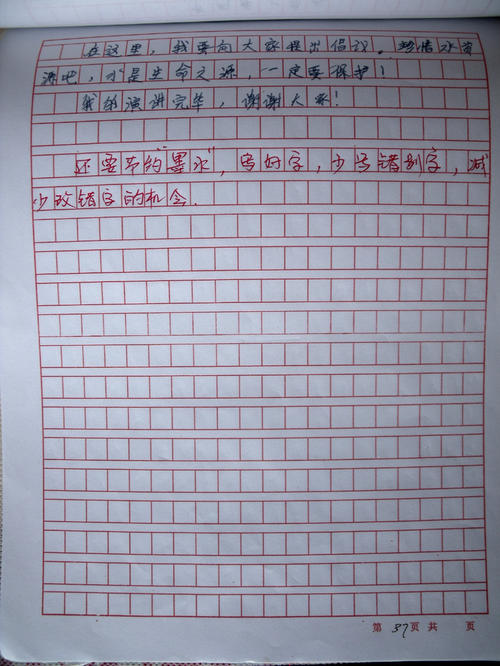 在这里，我要向大家提出倡议。珍惜水资
源吧，水是生命之源，一定要保护！
我的演讲完毕，谢谢大家！
还要节约“墨水”，写好字，少写错别字，减
少改错字的机会．
第 37 页 共 页